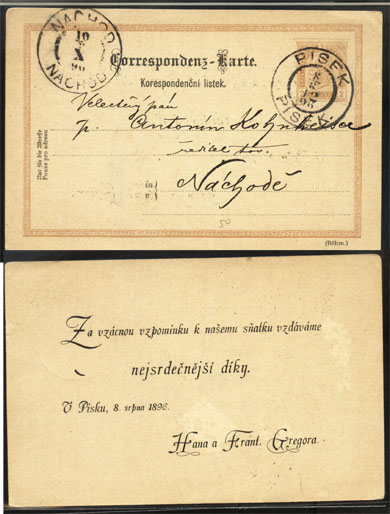 NÁCHOD
10
X
96
NACHOD
Correspondenz-Karte.
Korespondenční lístek.
PÍSEK
PISEK
Velectěný pan
p. Antonín
ředitel
Náchodě
in
v
Nur für die Adresse
Pouze pro adresu
50
(Böhm.)
Za vzácnou vzpomínku k našemu sňatku vzdáváme
nejsrdečnější díky.
V Písku, 8. srpna 1896.
Hana a Frant. Gregora.